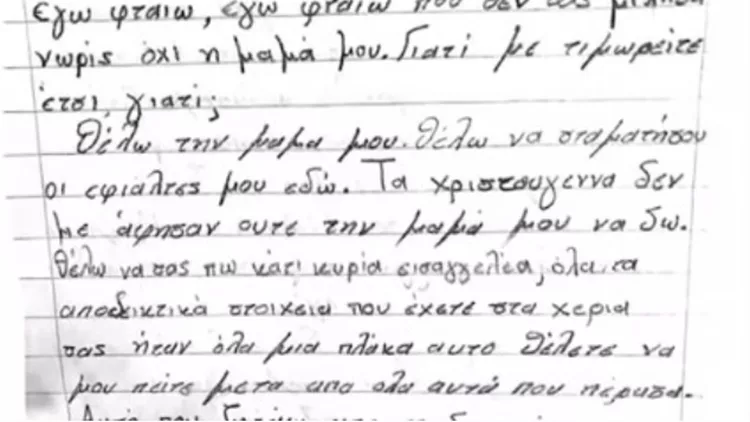 εγω φταιω, εγω φταιω που δεν σας μιλησα
νωρις όχι η μαμά μου. Γιατί με τιμωρείτε
έτσι, γιατί;
Θέλω την μαμα μου. Θέλω να σταματήσου
οι εφιάλτες μου εδώ. Τα χριστουγεννα δεν
με άφησαν ουτε την μαμά μου να δω.
Θέλω να σας πω κάτι κυρία εισαγγελέα, όλα τα
αποδεικτικά στοιχεια που έχετε στα χερια
σας ήταν όλα μια πλάκα αυτο θέλετε να
μου πείτε μετα απο ολα αυτά που πέρασα.
Αυτό που